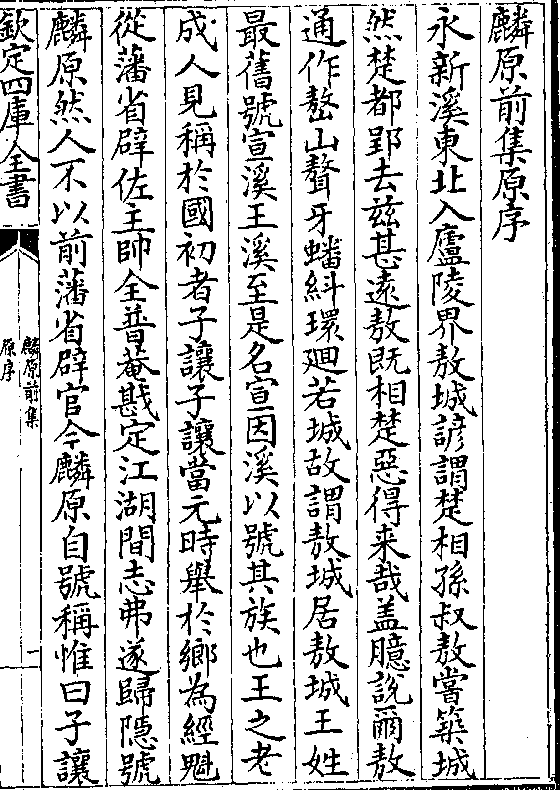 麟原前集原序
永新溪東北入廬陵界敖城諺謂楚相孫叔敖嘗築城
然楚都郢去兹甚遠敖既相楚惡得来哉盖臆說爾敖
通作嶅山聱牙蟠糾環廻若城故謂敖城居敖城王姓
最舊號宣溪王溪至是名宣因溪以號其族也王之老
成人見稱於國初者子讓子讓當元時舉於鄉為經魁
從藩省辟佐主帥全普菴戡定江湖間志弗遂歸隱號
麟原然人不以前藩省辟官今麟原自號稱惟曰子讓
欽定四庫全書
麟原前集
原序
一